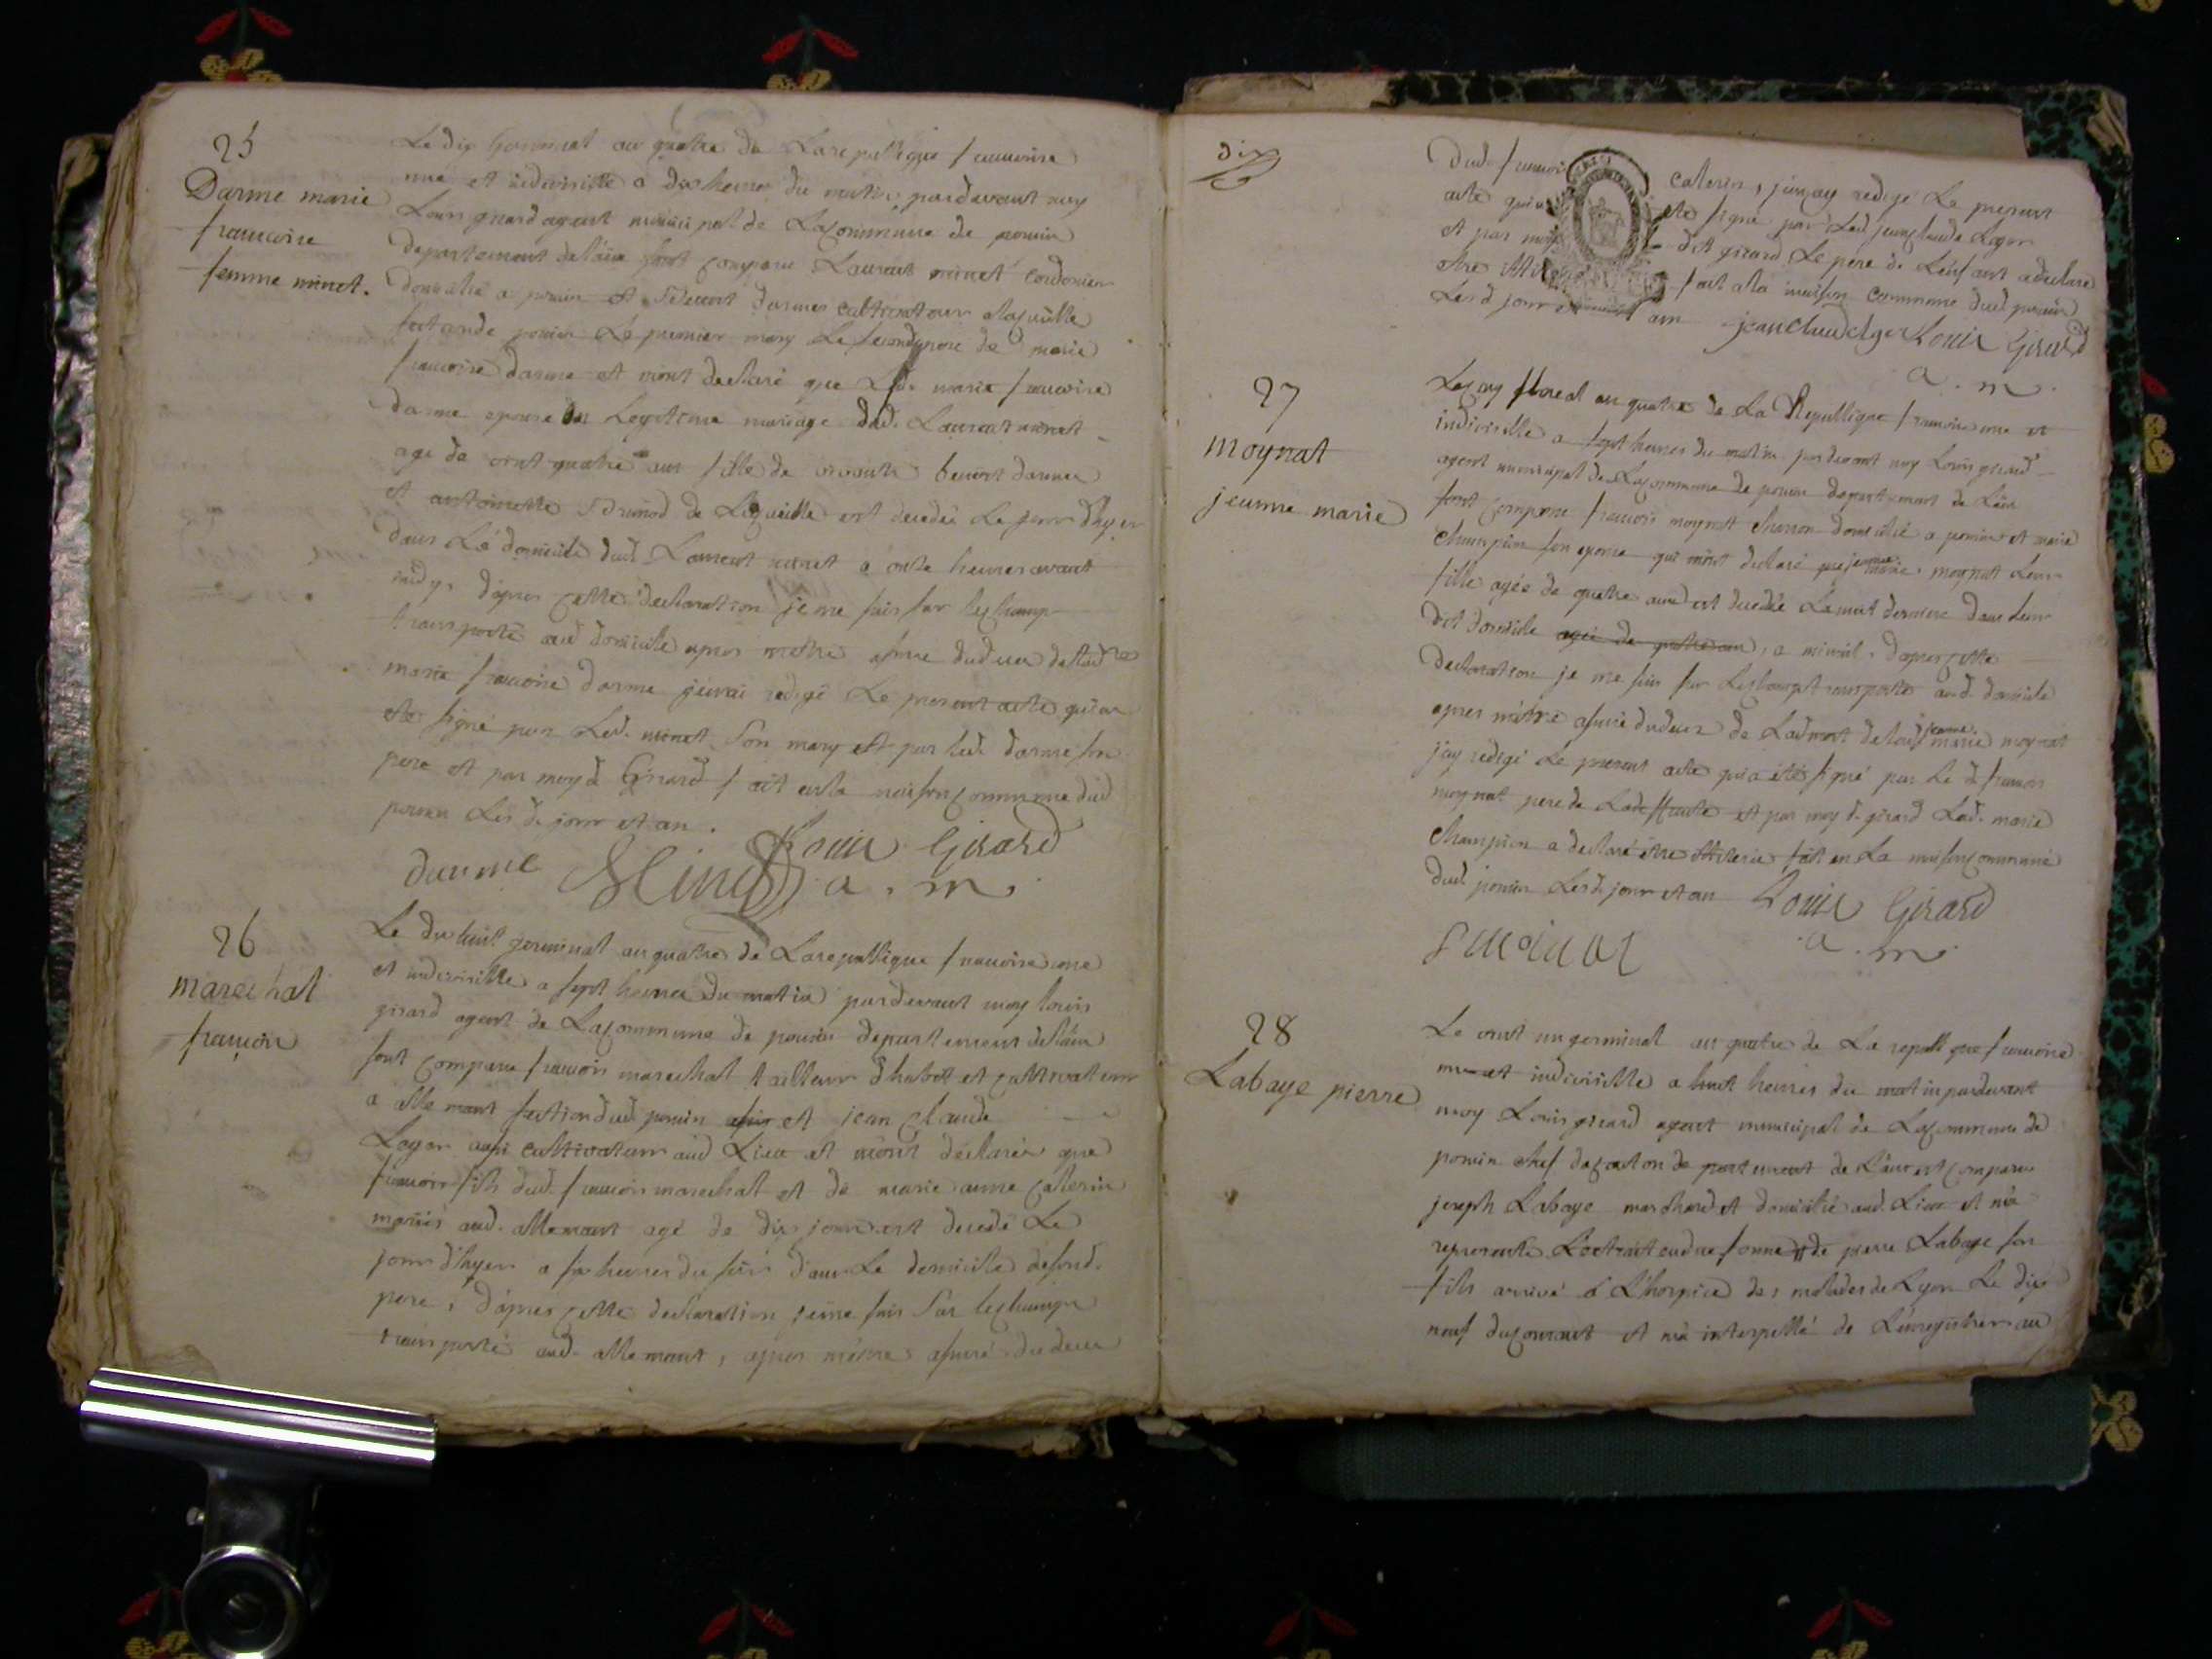 25
Darme marie
francoise
femme minet.
Le dix germinal an quatre de La republique francoise
une et indivisible a dix heures du matin pardevant moy
Louis girard agent municipal de La commune de poncin
departement de l'ain sont comparu Laurent minet cordonier
domicilié a poncin et benoit darmes cultivateur a
de poncin Le premier mary Le second pere de marie
francoise darme et m'ont declaré que Lad. marie francoise
darme epouse en Legitime mariage dud. Laurent minet
agé de vint quatre ans fille de benoit darmes
et antoinette de est decedée Le jour d'hyer
dans Le domicile dud. Laurent minet a onze heures avant
midy, d'apres cette declaration je me suis sur le champ
transporté aud domicile apres m'etre assuré du deces de lad.
marie francoise darme j'en ai redigé Le present acte qui a
ete signé par Led. minet Son mary et par led. darme son
pere et par moyd Girard fait en la maison commune dud
poncin Les d. jour et an.
darme Minet Louis Girard
a. m.
26
marechal
francois
Le dix huit germinal an quatre de La republique francoise une
et indivisible a sept heures du matin pardevant moy louis
girard agent de La commune de poncin departement de l'ain
sont comparu francois marechal tailleur d'habit et cultivateur
a allemant section dud poncin et jean claude
Loger aussi cultivateur aud Lieu et m'ont declaré que
francois fils dud. francois marechal et de marie anne caterin
mariés aud. allemant agé de dix jours est decedé Le
jour d'hyer a six heures du soir dans Le domicile de sond.
pere, d'apres cette declaration je me suis Sur le champ
transporté aud. allemant, apres m'etre assuré du deces
dix
dud. francois caterin, j'en ay redigé Le present
acte qui a ete signé par Led. jean claude Loger
et par moy dit girard Le pere de L'enfant a declaré
etre fait a la maison commune dud poncin
Les d jour et an jean claude loger Louis Girard
a. m.
27
moynat
jeanne marie
floreal an quatre de La Republique francoise une et
indivisible a sept heures du matin par devant moy Louis girard
agent municipal de La commune de poncin departement de L'ain
sont comparu francois moynat domicilié a poncin et marie
champion son epouse qui m'ont declaré que jeanne marie moynat Leur
fille agée de quatre ans est decedée La nuit derniere dans leur
dit domicile agée de quatre ans, a minuit. d'apres cette
declaration je me suis sur Le champ transporté aud. domicile
apres m'etre assuré du deces de Lad jeanne marie moynat
j'ay redigé Le present acte qui a été signé par Le d francois
moynat pere de La defunte et par moy d. girard Lad. marie
champion a declaré etre illiterée fait en La maison commune
dud. poncin Les d. jour et an Louis Girard
a. m.
28
Labaye pierre
Le vint un germinal an quatre de La republique francoise
une et indivisible a huit heures du matin pardevant
moy Louis girard agent municipal de La commune de
poncin chef de canton departement de L'ain est comparu
joseph Labaye marchand et domicilié aud. Lieu et m'a
representé L'extrait en due forme de pierre Labaye son
fils arrivé a L'hospice des malades de Lyon Le dix
neuf du courant et m'a interpellé de L'enregistrer au